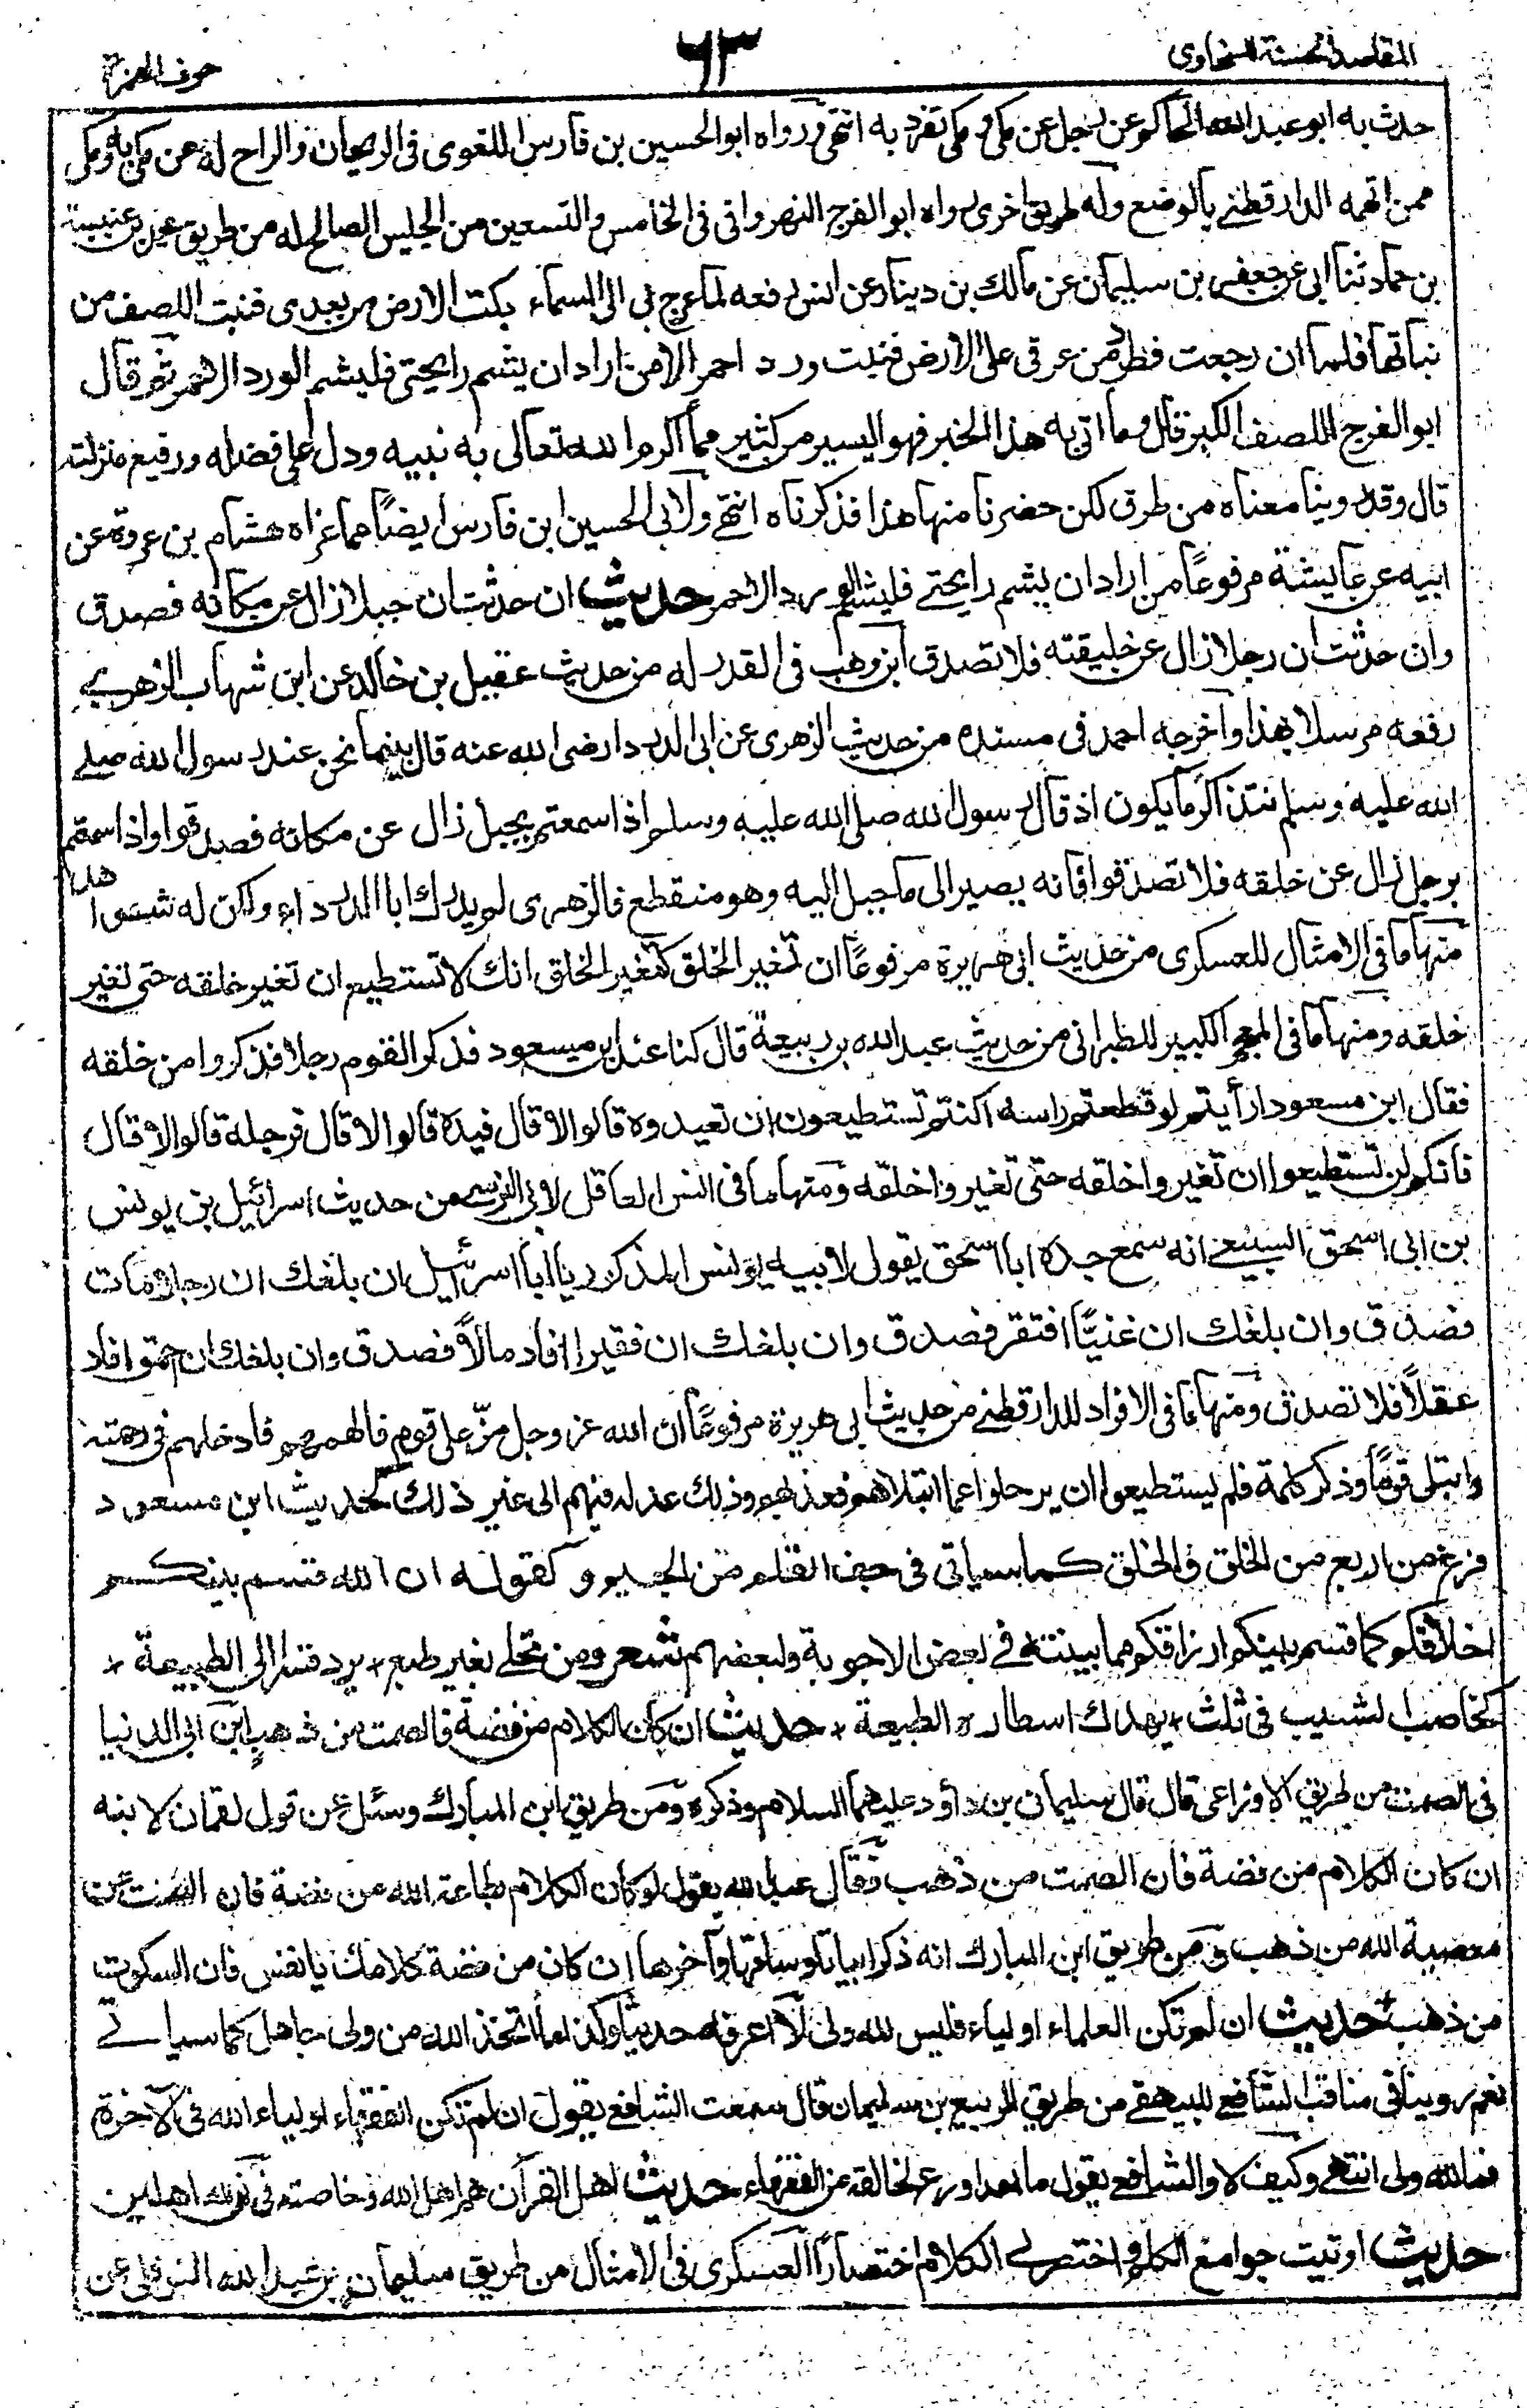 المقاصد الحسنة للسخاوى
٦٣
حرف الهمزة
حدث به ابو عبد الله الحاكم عن رجل عن مكى و مكى تفرد به انتهى ورواه ابو الحسين بن فارس اللغوى فى الريحان والراح له عن مكى به ومكى
ممن اتهمه الدارقطنى بالوضع وله طريق اخرى رواه ابو الفرج النهروانى فى الخامس والتسعين من الجليس الصالح له من طريق
بن حماد ثنا ابى عن جعفر بن سليمان عن مالك بن دينار عن انس رفعه لما عرج بى الى السماء بكت الارض من بعدى فنبت اللصف من
نباتها فلما ان رجعت قطر من عرقى على الارض فنبت ورد احمر الا من اراد ان يشم رايحتى فليشم الورد الاحمر ثم قال
ابو الفرج اللصف الكبر قال وما اتى به هذا الخبر فهو اليسير من كثير مما اكرم الله تعالى به نبيه ودل على فضله ورفيع منزلته
قال وقد روينا معناه من طرق لكن حضرنا منها هذا فذكرناه انتهى ولابى الحسين ابن فارس ايضًا مما عزاه هشام بن عروة عن
ابيه عن عايشة مرفوعًا من اراد ان يشم رايحتى فليشم الورد الاحمر حديث ان حدثت ان جبلا زال عن مكانه فصدق
وان حدثت ان رجلا زال عن خليقته فلا تصدق ابن وهب فى القدر له من حديث عقيل بن خالد عن ابن شهاب الزهرى
رفعه مرسلا بهذا واخرجه احمد فى مسنده من حديث الزهرى عن ابى الدردا رضى الله عنه قال بينما نحن عند رسول الله صلى
الله عليه وسلم نتذاكر ما يكون اذ قال رسول الله صلى الله عليه وسلم اذا سمعتم بجبل زال عن مكانه فصدقوا واذا سمعتم
برجل زال عن خلقه فلا تصدقوا فانه يصير الى ما جبل اليه وهو منقطع فالزهرى لم يدرك ابا الدرداء ولكن له شواهد
منها ما فى الامثال للعسكرى من حديث ابى هريرة مرفوعًا ان تغير الخلق كتغير الخلق انك لا تستطيع ان تغير خلقه حتى تغير
خلقه ومنها ما فى المعجم الكبير للطبرانى من حديث عبد الله بن ربيعة قال كنا عند ابن مسعود فذكر القوم رجلا فذكروا من خلقه
فقال ابن مسعود ارأيتم لو قطعتم راسه اكنتم تستطيعون ان تعيدوه قالوا لا قال فيده قالوا لا قال فرجله قالوا لا قال
فانكم لن تستطيعوا ان تغيروا خلقه حتى تغيروا خلقه ومنها ما فى انس العاقل لابى النرسى من حديث اسرائيل بن يونس
بن ابى اسحق السبيعى انه سمع جده ابا اسحق يقول لابيه يونس المذكور يا ابا اسرائيل ان بلغك ان رجلا مات
فصدق وان بلغك ان غنيًّا افتقر فصدق وان بلغك ان فقيرا افاد مالًا فصدق وان بلغك ان حمقا افاد
عقلًا فلا تصدق ومنها ما فى الافراد للدارقطنى من حديث ابى هريرة مرفوعًا ان الله عز وجل منّ على قوم فالهمهم فادخلهم فى رحمته
وابتلى قومًا وذكر كلمة فلم يستطيعوا ان يرحلوا عما ابتلاهم فعذبهم وذلك عدله فيهم الى غير ذلك كحديث ابن مسعود
فرغ من اربع من الخلق والخلق كما سياتى فى جف القلم من الجيم و كقوله ان الله قسم بينكم
اخلاقكم كما قسم بينكم ارزاقكم مما بينته فى بعض الاجوبة ولبعضهم شعر ومن تحلى بغير طبع + يرد قسرا الى الطبيعة +
كخاضب الشيب فى ثلث + يهتك استاره الطبيعة + حديث ان كان الكلام من فضة فالصمت من ذهب ابن ابى الدنيا
فى الصمت من طريق الاوزاعى قال قال سليمان بن داود عليهما السلام وذكره ومن طريق ابن المبارك وسئل عن قول لقمان لابنه
ان كان الكلام من فضة فان الصمت من ذهب فقال عبد الله يقول لو كان الكلام بطاعة الله من فضة فان الصمت عن
معصية الله من ذهب ومن طريق ابن المبارك انه ذكر ابياتا وساقها وآخرها ان كان من فضة كلامك يا نفس فان السكوت
من ذهب + حديث ان لم تكن العلماء اولياء فليس لله ولى لا اعرفه حديثا وكذا ما اتخذ الله من ولى جاهل كما سياتى
نعم روينا فى مناقب الشافعى للبيهقى من طريق الربيع بن سليمان قال سمعت الشافعى يقول ان لم تكن الفقهاء اولياء الله فى الآخرة
فما لله ولى انتهى وكيف لا والشافعى يقول ما احد اورع لخالقه من الفقهاء حديث اهل القرآن هم اهل الله وخاصته فى ان لله اهلين
حديث اوتيت جوامع الكلم واختصر لى الكلام اختصارًا العسكرى فى الامثال من طريق سليمان بن عبد الله النوفلى عن